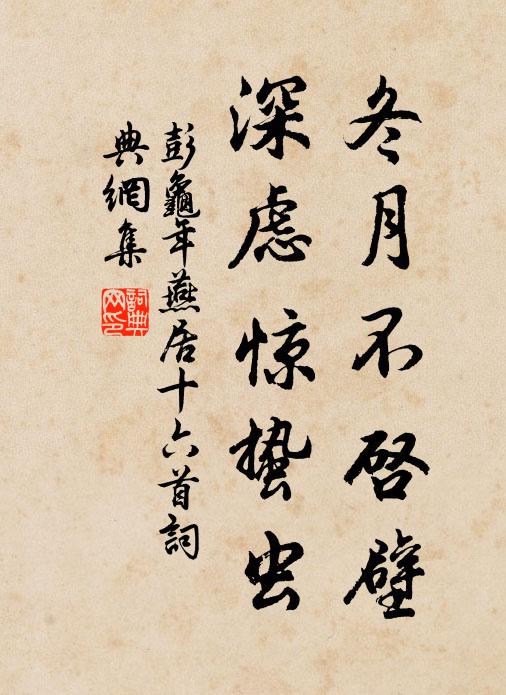 冬月不启壁
深虑惊蛰虫
彭龜年燕居十六首詞
典網集
詞典网印